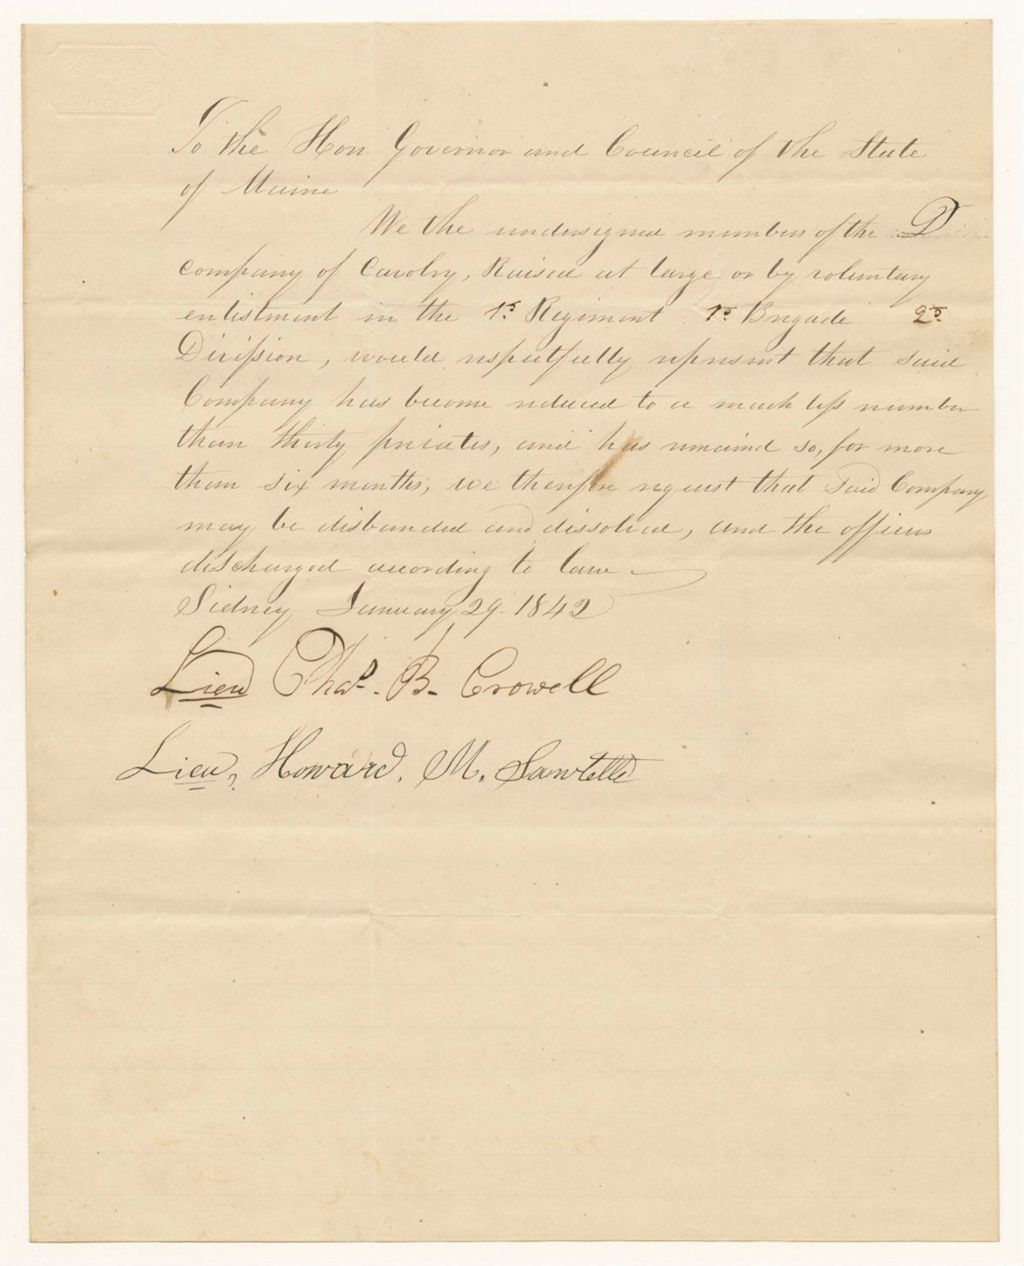 To the Hon Governor and Council of the State
of Maine
We the undersigned members of the D
company of Cavalry, Raised at large or by voluntary
enlistment in the 1st Regiment 1st Brigade 2d
Division, would respectfully represent that said
Company has become reduced to a much less number
than thirty privates, and has remained so, for more
than six months, we therefore request that said Company
may be disbanded and dissolved, and the officers
discharged according to law
Sidney January 29 1842
Lieu Chas. B. Crowell
Lieu, Howard. M. Sawtelle